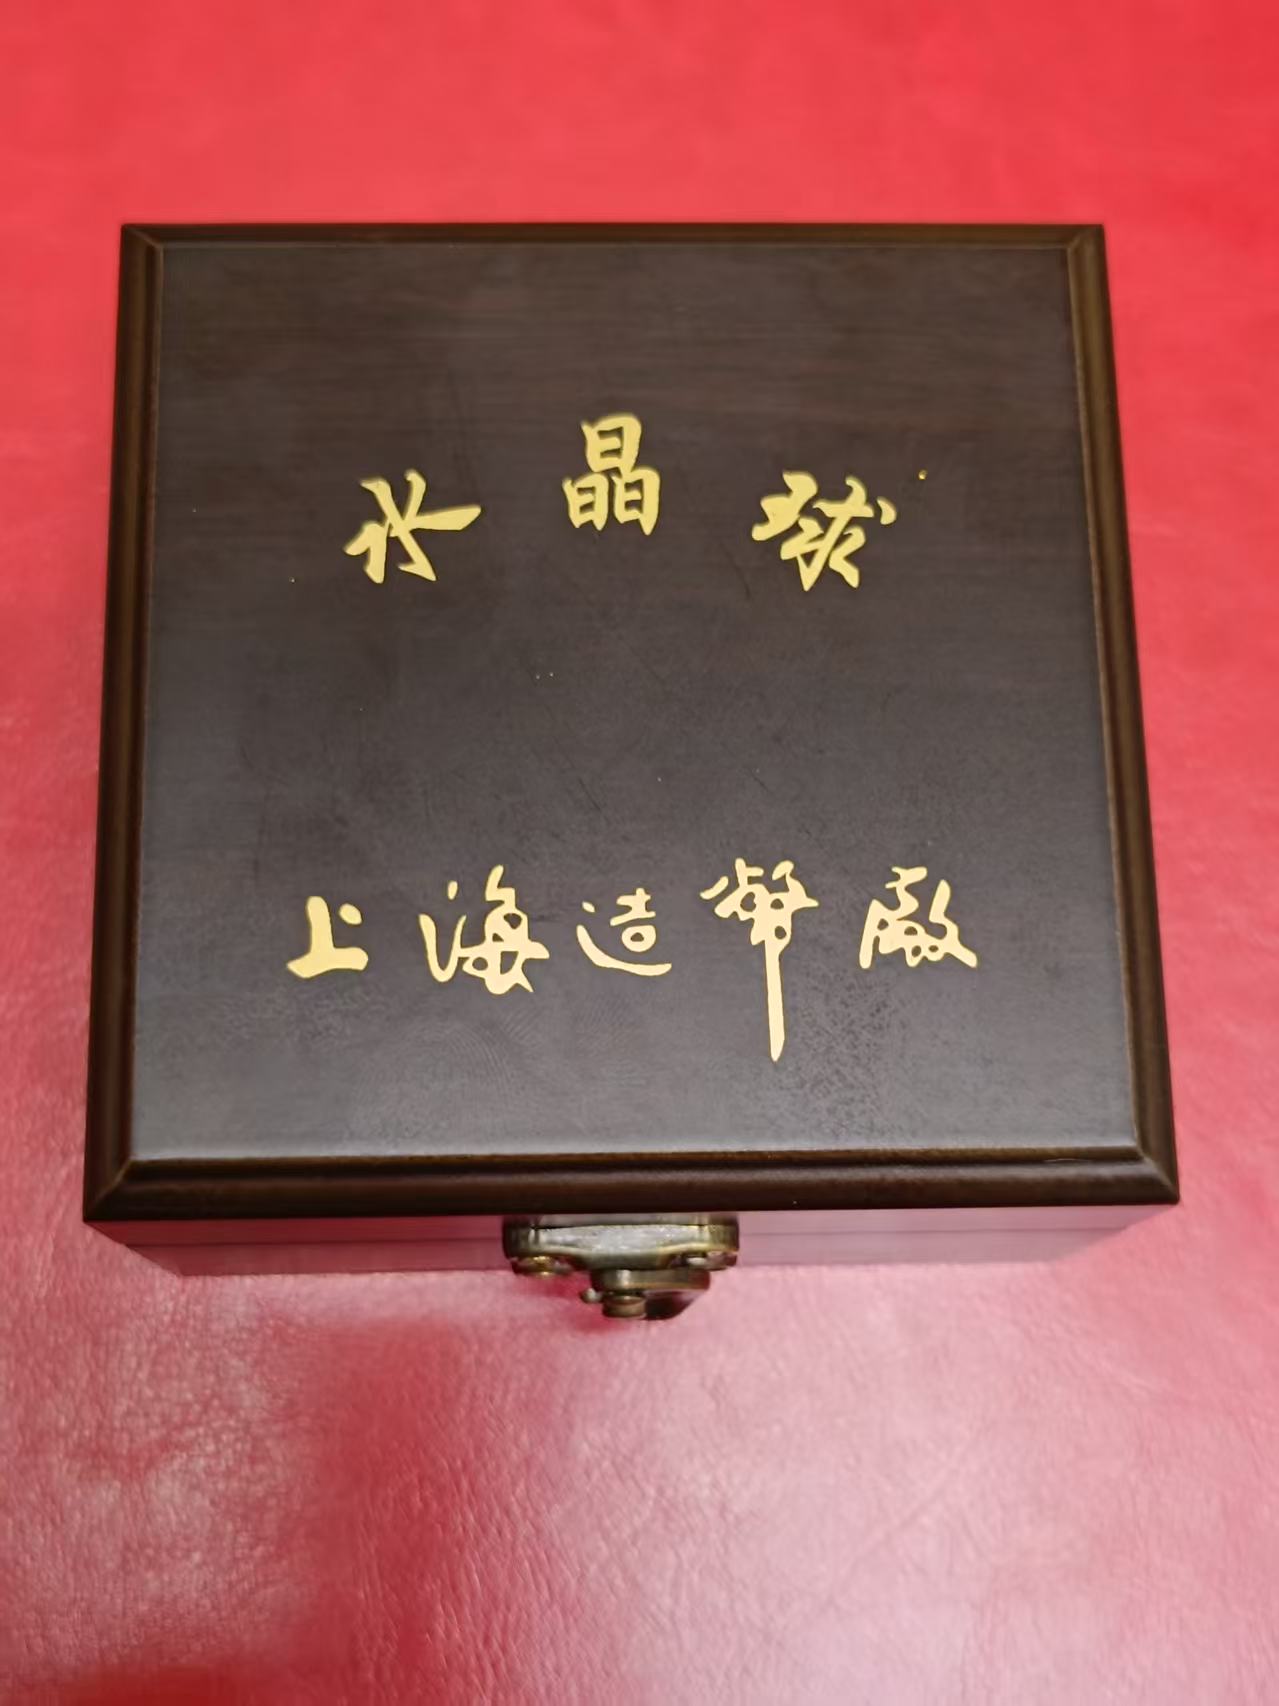 水晶球
上海造幣廠